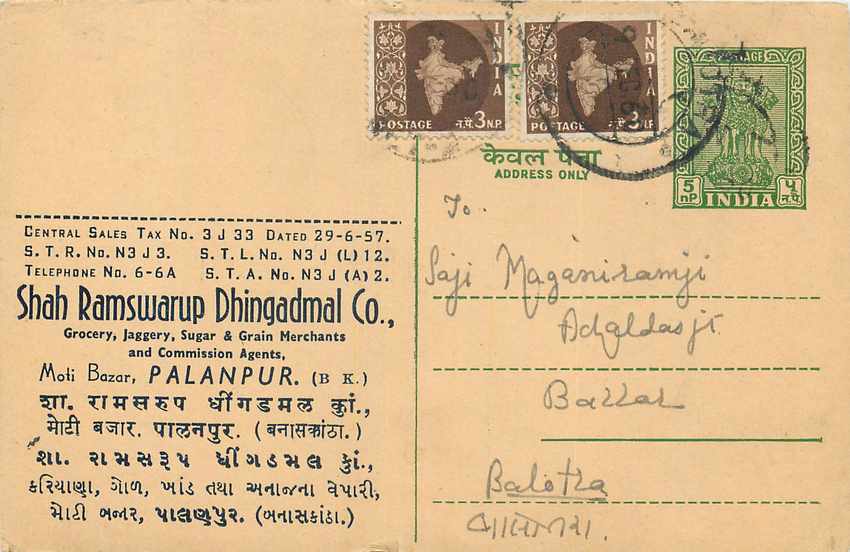 INDIA
POSTAGE न.पै. 3 N.P.
INDIA
POSTAGE न.पै. 3
POSTAGE
5 nP. INDIA ५ न.पै.
केवल पता
ADDRESS ONLY
CENTRAL SALES TAX NO. 3 J 33 DATED 29-6-57.
S. T. R. NO. N3 J 3. S. T. L. NO. N3 J (L) 12.
TELEPHONE NO. 6-6A S. T. A. NO. N3 J (A) 2.
Shah Ramswarup Dhingadmal Co.,
Grocery, Jaggery, Sugar & Grain Merchants
and Commission Agents,
Moti Bazar, PALANPUR. (B K.)
શા. રામસરુપ ધીંગડમલ કું.,
મોટી બજાર. પાલનપુર. (બનાસકાંઠા.)
શા. રામસરૂપ ધીંગડમલ કું.,
કરિયાણા, ગોળ, ખાંડ તથા અનાજના વેપારી,
મોટી બજાર, પાલણપુર. (બનાસકાંઠા.)
To.
Saji Maganiramji
Achaldasji
Bazzar
Balotra